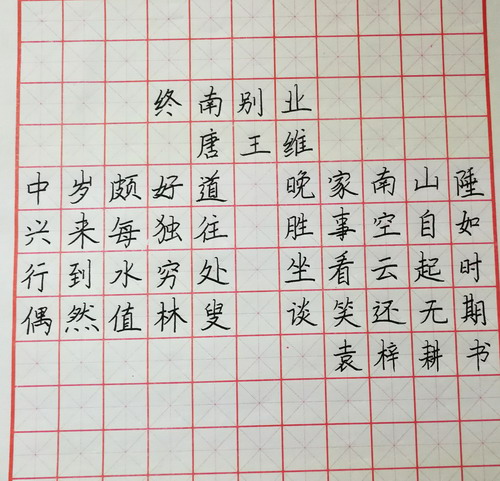 终南别业
唐王维
中岁颇好道 晚家南山陲
兴来每独往 胜事空自如
行到水穷处 坐看云起时
偶然值林叟 谈笑还无期
袁梓耕书